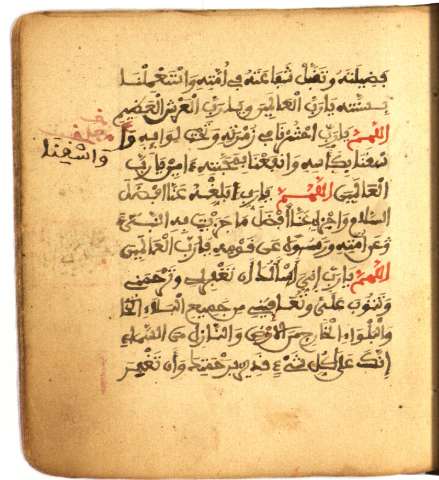 فضيلته وتقبل شفاعته في أمته واستعملنا
بسنته يا رب العالمين ويا رب العرش العظيم
اللهم يا رب احشرنا في زمرته وتحت لوايه وا
واسقنا
سقنا بكأسه وانفعنا بمحبته ءامين يا رب
العالمين اللهم يا رب أبلغه عنا افضل
السلام واجزه عنا أفضل ما جزيت به النبيء
عن امته ورسولا عن قومه يا رب العالمين
اللهم يا رب إني أسألك أن تغفر لي وترحمني
وتتوب علي وتعافيني من جميع البلاء الخا
والبلواء الخارج من الأرض والنازل من السماء
إنك على كل شيء قدير برحمتك وأن تغفر